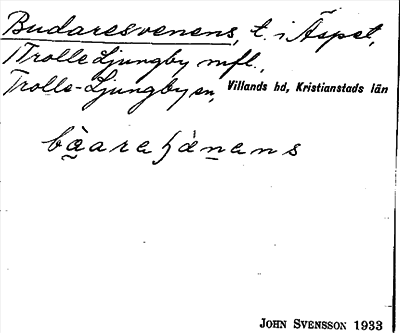 Budaresvenens, t. i Äspet,
1 Trolle Ljungby mfl.,
Trolle-Ljungby sn, Villands hd, Kristianstads län
JOHN SVENSSON 1933